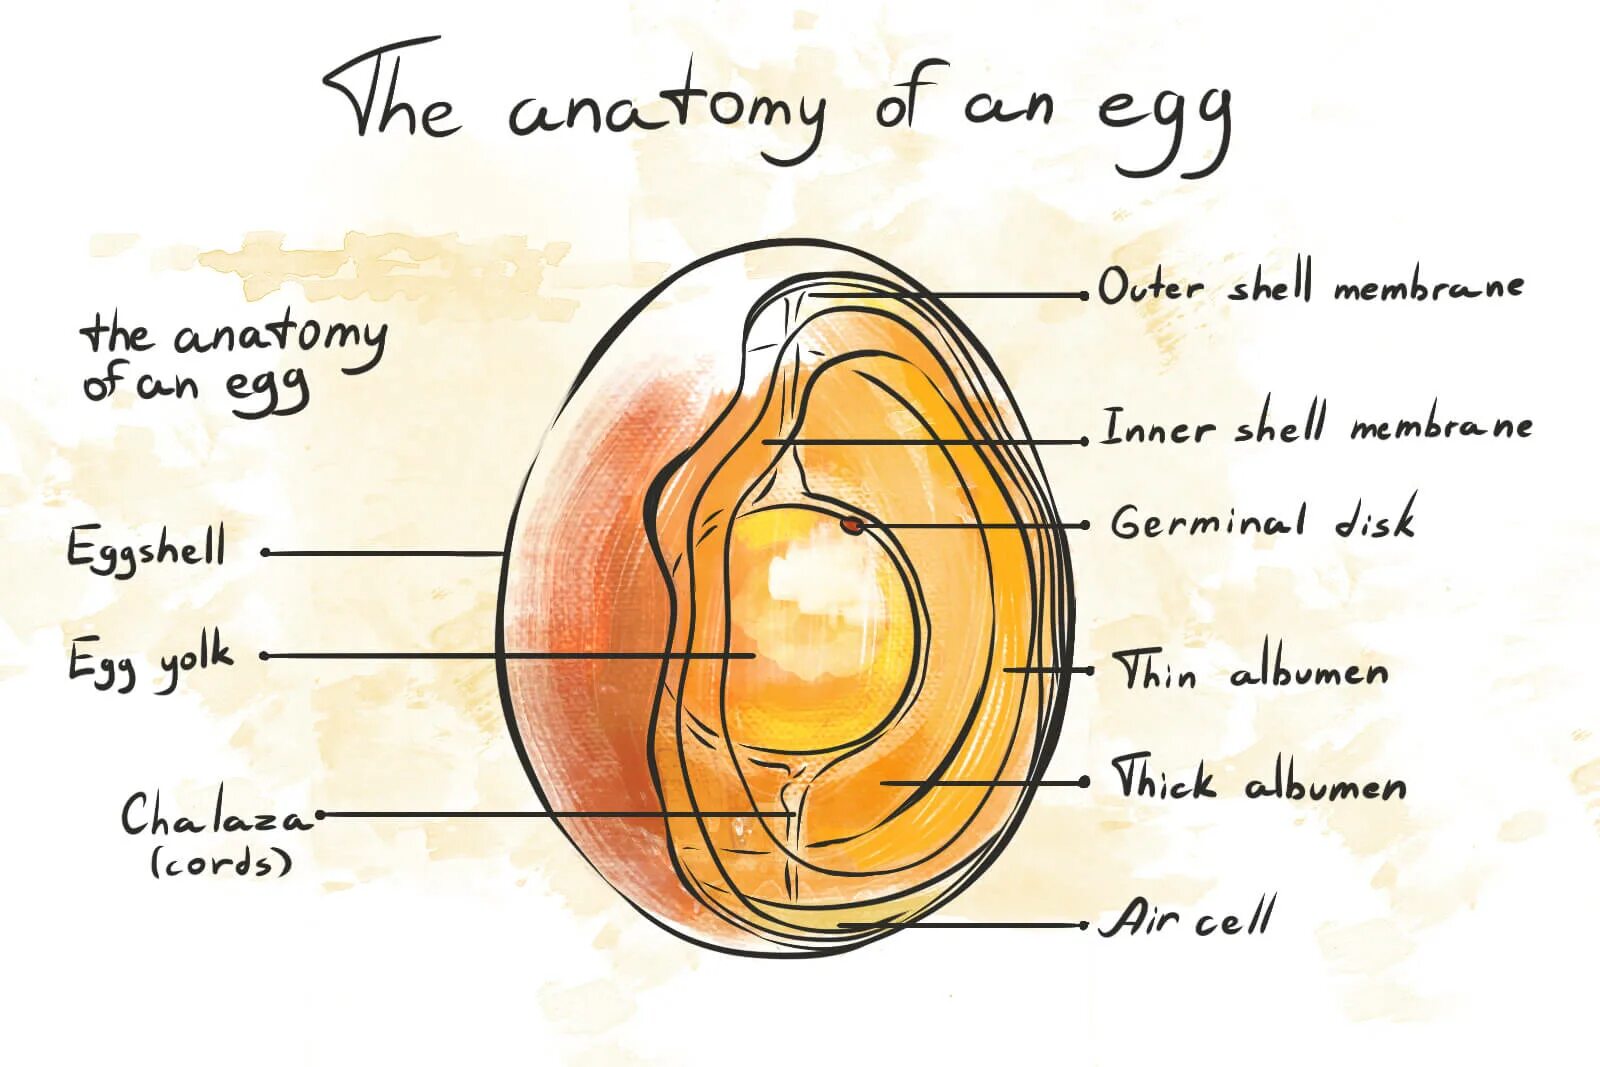 The anatomy of an egg
the anatomy
of an egg
Eggshell
Egg yolk
Chalaza
(cords)
Outer shell membrane
Inner shell membrane
Germinal disk
Thin albumen
Thick albumen
Air cell